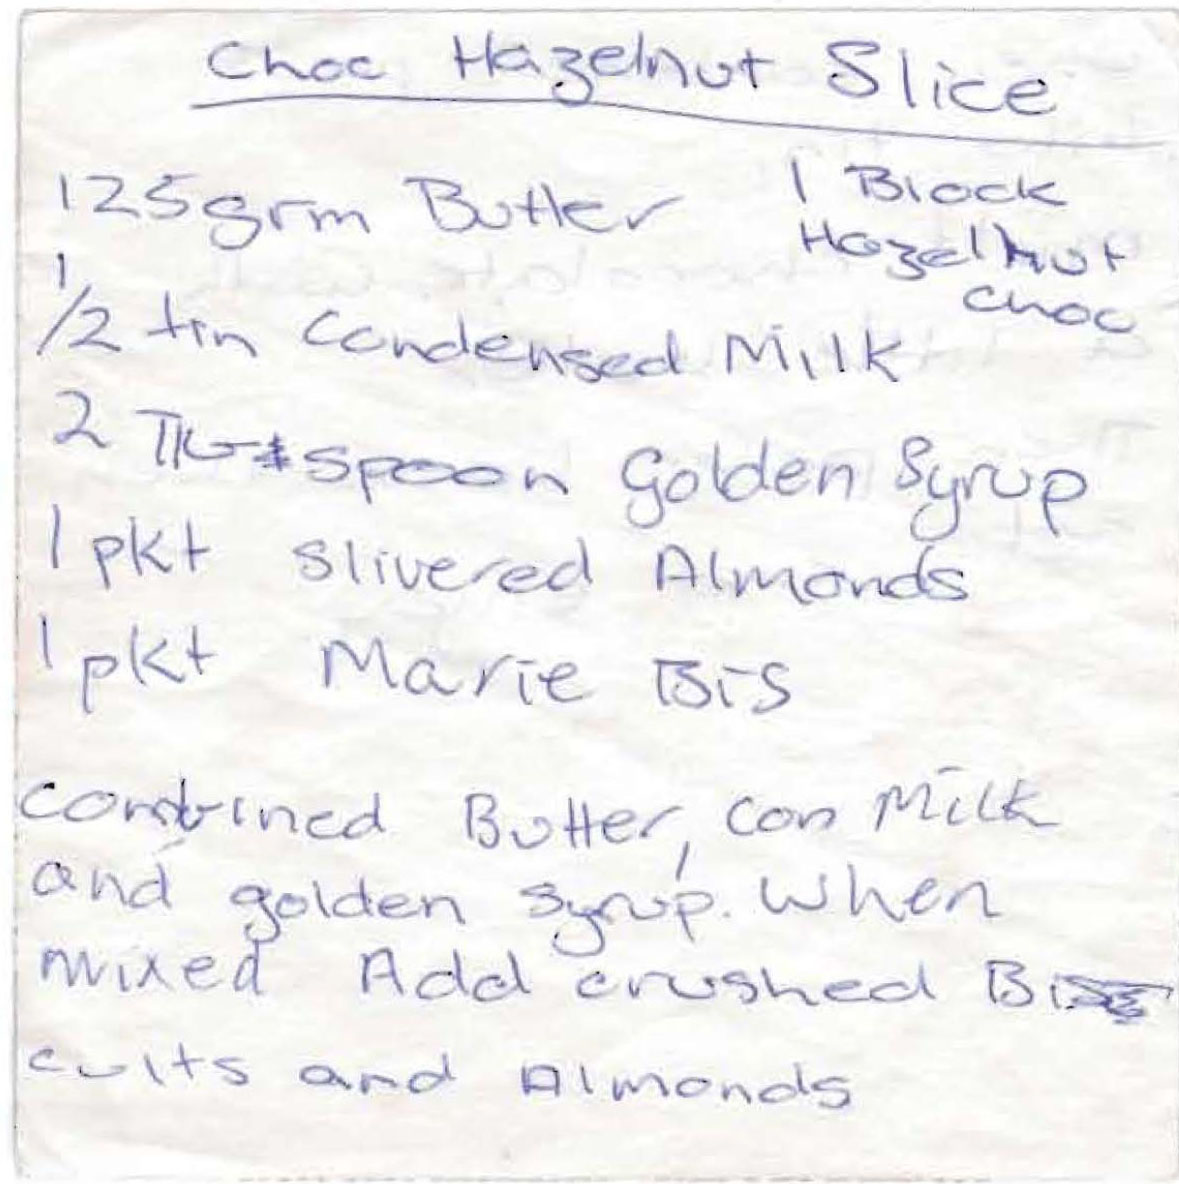 Choc Hazelnut Slice
125grm Butter
1 Block
Hazelnut
choc
1/2 tin Condensed Milk
2 spoon Golden Syrup
1 pkt slivered Almonds
1 pkt Marie Bis
Combined Butter, Con Milk
and golden syrup. When
mixed Add crushed Bis
cuits and Almonds